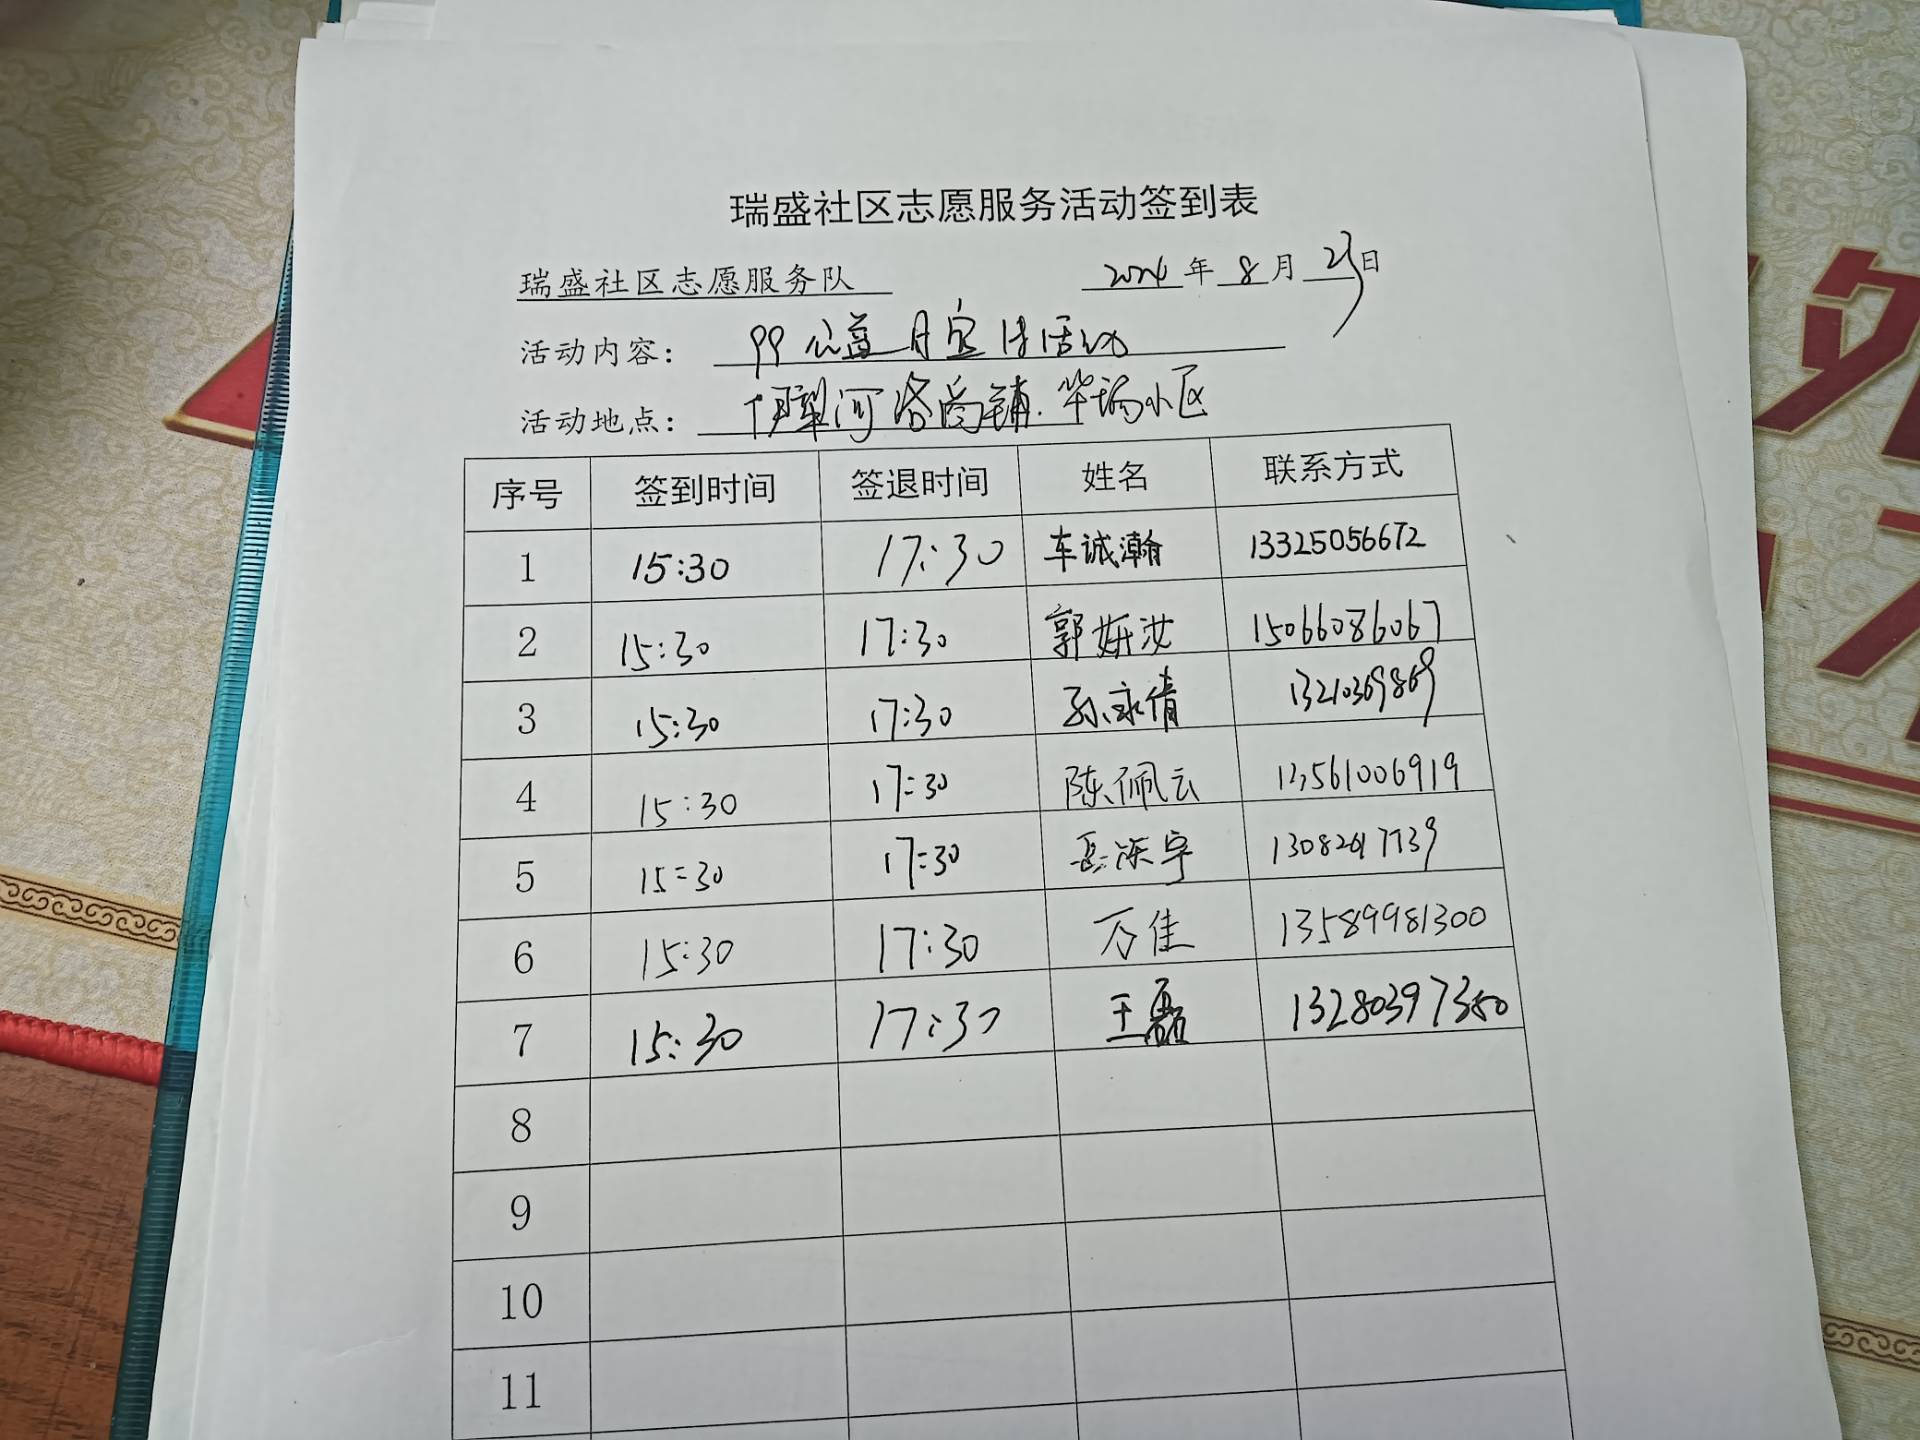 瑞盛社区志愿服务活动签到表
瑞盛社区志愿服务队 2024 年 8 月 23 日
活动内容: 99公益日宣传活动
活动地点: 伊犁河路商铺. 华瑞小区
序号 签到时间 签退时间 姓名 联系方式
1 15:30 17:30 车诚瀚 13325056672
2 15:30 17:30 郭妍汝 15066086067
3 15:30 17:30 孙永倩 13210369869
4 15:30 17:30 陈佩云 13561006919
5 15:30 17:30 岳泺宇
6 15:30 17:30 万佳 13589981300
7 15:30 17:30 王磊 13280397350
8
9
10
11